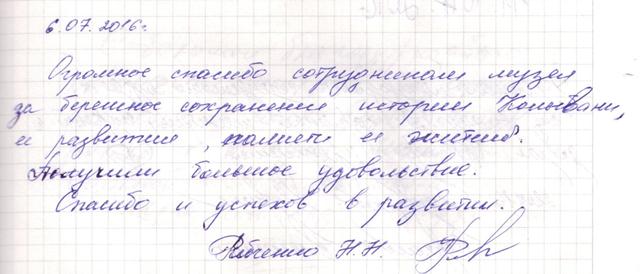 6.07.2016г.
Огромное спасибо сотрудникам музея
за бережное сохранение истории Колывани,
её развития, памяти её жителей.
Получили большое удовольствие.
Спасибо и успехов в развитии.
Н.Н.